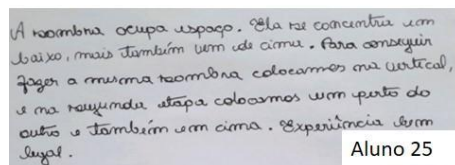 A sombra ocupa espaço. Ela se concentra em
baixo, mais também vem de cima. Para conseguir
fazer a mesma sombra colocamos na vertical,
e na segunda etapa colocamos um perto do
outro e também em cima. Experiência bem
legal.
Aluno 25